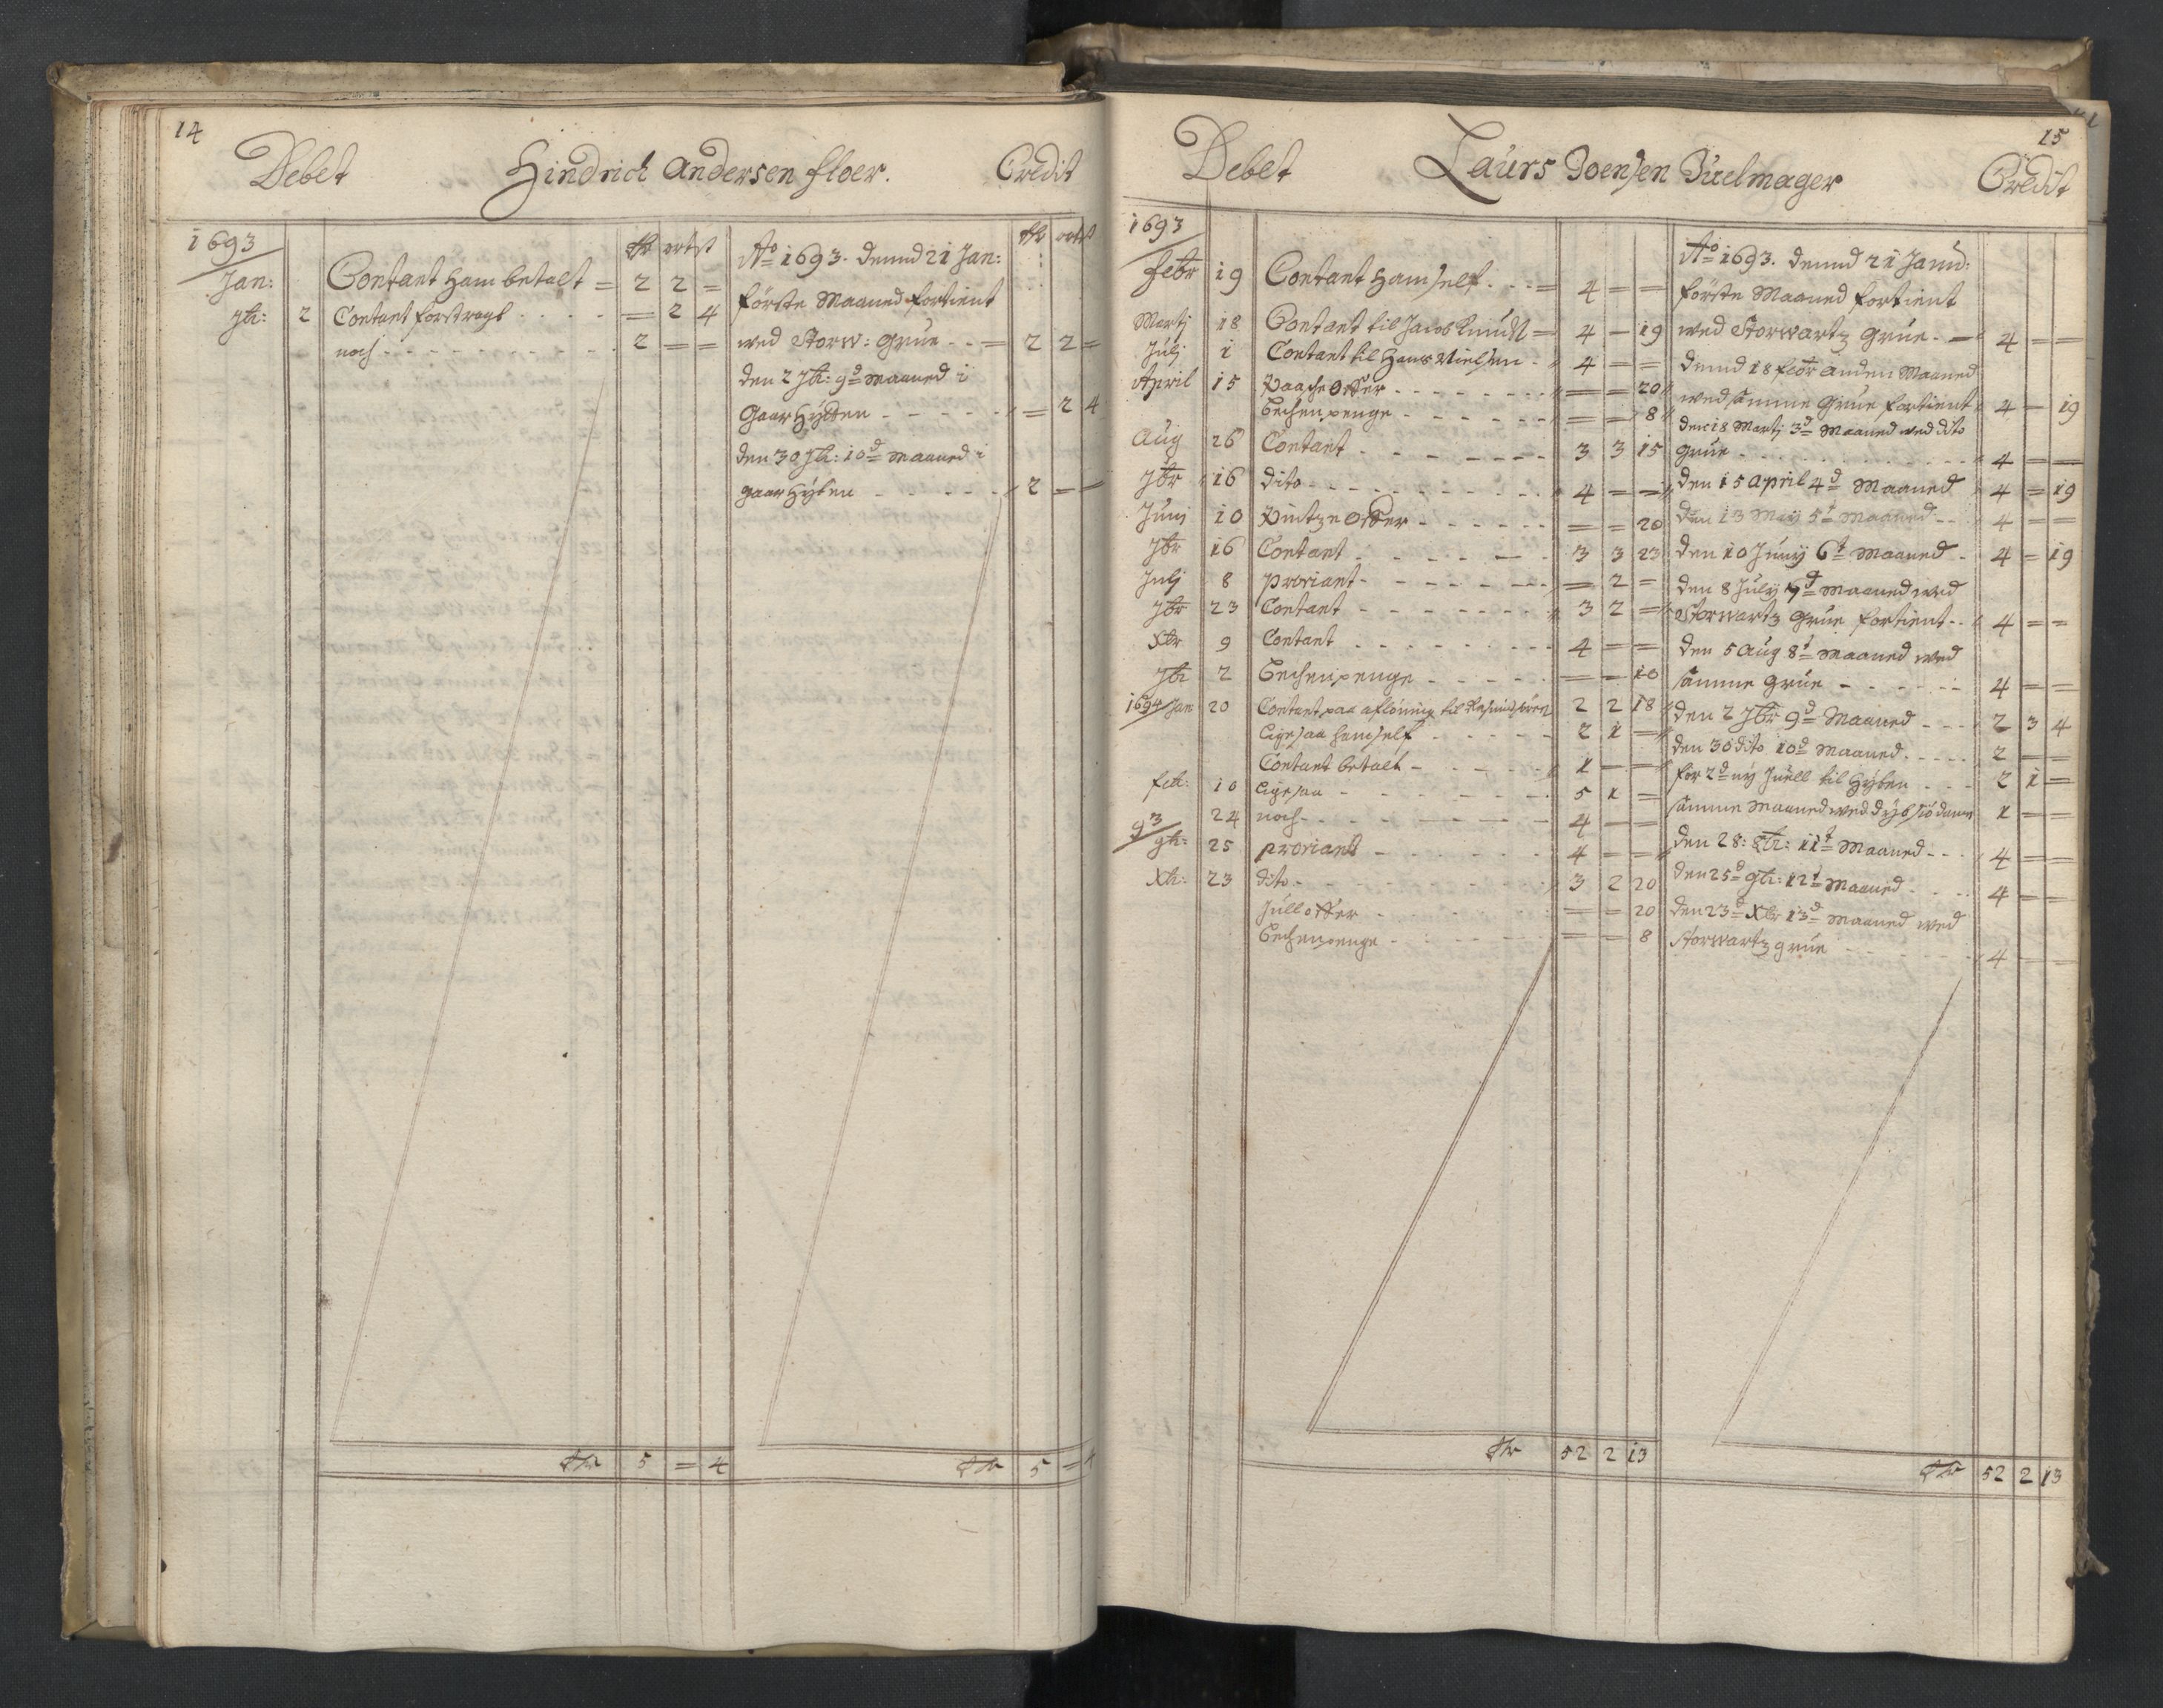 14
Debet Hindrich Andersen floer. Credit
1693 Rdr ortst
Jan: Contant ham betalt = 2 2 =
7br: 2 Contant forstragt = 2 4
noch 2 = =
Rdr ortst
Ao 1693. dennd 21 Jan:
förste Maaned fortient
wed Storw: Grue 2 2 =
den 2 7br: 9d Maaned i
Gaar Hÿtten = 2 4
den 30 7br: 10d Maaned i
gaar Hÿten 2 = =
Rdr 5 = 4
Rdr 5 = 4
15
Debet Laurs Joensen Juelmager Credit
1693
febr 19 Contant ham self 4 = =
Martj 18 Contant til Jacob Knuds = 4 – 19
Julj 1 Contant til Hans Nielsen 4 = =
April 15 Paasche Offer = = 20
Bechen penge = = 8
Aug 26 Contant 3 3 15
7br 16 dito 4 = =
Junj 10 Pintze Offer = = 20
7br 16 Contant 3 3 23
Julj 8 proviant = 2 =
7br 23 Contant 3 2 =
Xbr 9 Contant 4 = =
7br 2 Bechenpenge = = 10
1694 Jan 20 Contant paa aflöning til 2 2 18
ligesaa hamself 2 1 =
Contant betalt 1 = =
feb: 10 ligesaa 5 1 =
24 noch 4 = =
93
9br: 25 proviant 4 = =
Xbr: 23 dito 3 2 20
Jull offer = = 20
Bechenpenge = = 8
Ao 1693. dennd 21 Janu:
förste Maaned fortient
wed Storwartz Grue 4 = =
dennd 18 febr anden Maaned
wed samme Grue fortient 4 = 19
den 18 Martj 3d Maaned wed dito
grue 4 = =
den 15 April 4d Maaned 4 = 19
den 13 Maÿ 5t Maaned 4 = =
den 10 Junij 6t Maaned 4 = 19
den 8 Julÿ 7d Maaned wed
Storwartz Grue fortient 4 = =
den 5 Aug 8t Maaned wed
samme Grue 4 = =
den 2 7br 9d Maaned 2 3 4
den 30 dito 10d Maaned 2 = =
for 2d nÿ Juell til Hÿten 2 1 =
samme Maaned wed dÿbsiö dam 1 = =
den 28: 8br: 11t Maaned 4 = =
den 25d 9br: 12t Maaned 4 = =
den 23d Xbr 13d Maaned wed
Storwartz grue 4 = =
Rdr 52 2 13
Rdr 52 2 13